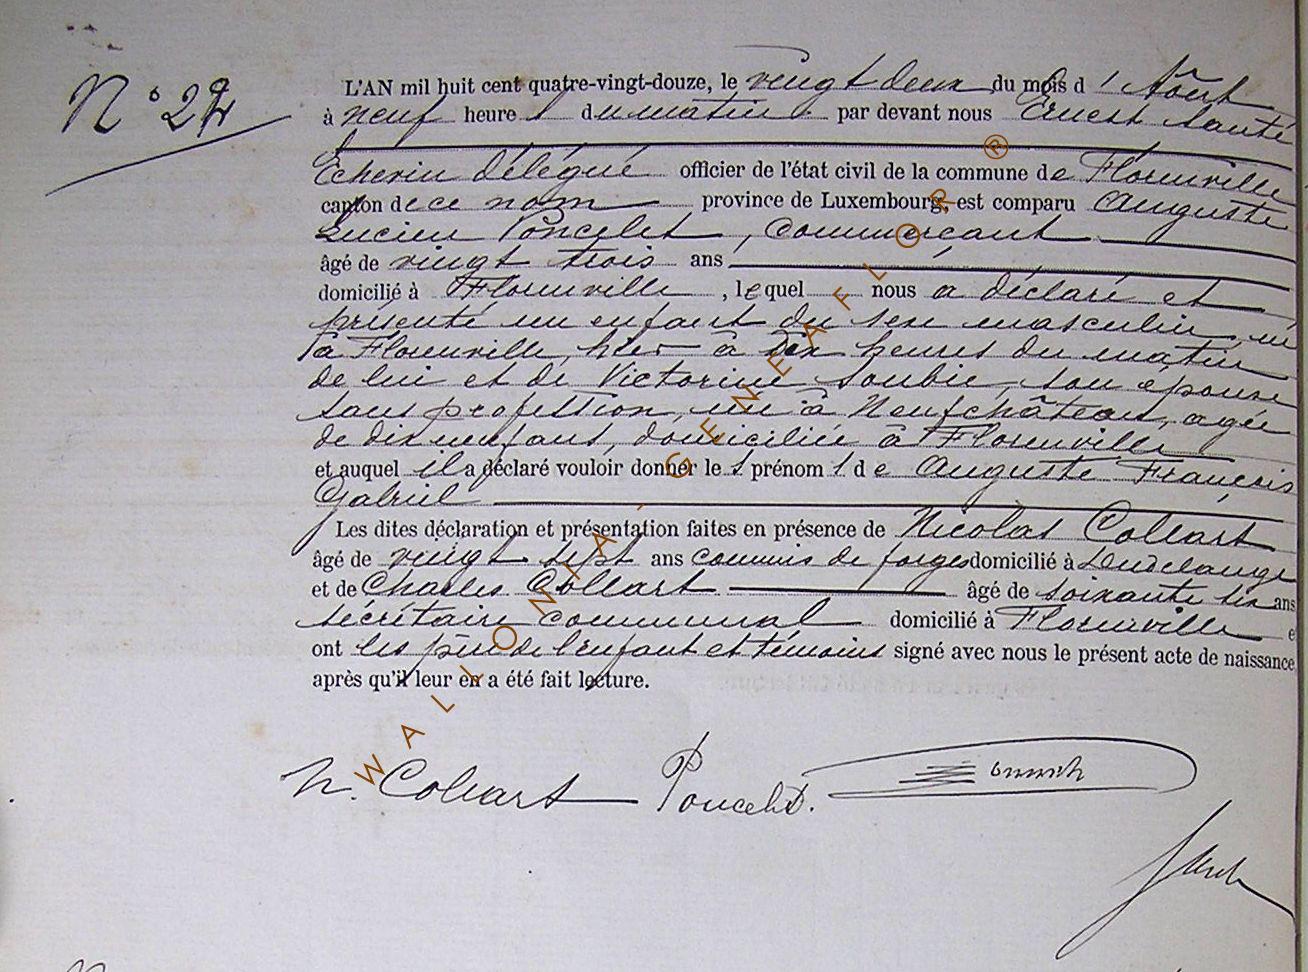 N° 24
L'AN mil huit cent quatre-vingt-douze, le vingt deux du mois d' Août
à neuf heure s du matin par devant nous Ernest
Echevin délégué officier de l'état civil de la commune de Florenville
canton de ce nom province de Luxembourg, est comparu Auguste
Lucien Poncelet, commerçant
âgé de vingt trois ans
domicilié à Florenville, lequel nous a déclaré et
présenté un enfant du sexe masculin, né
à Florenville, hier à dix heures du matin
de lui et de Victorine Soubie, son épouse
sans profession, née à Neufchâteau, agée
de dix neuf ans, domiciliée à Florenville
et auquel il a déclaré vouloir donner le s prénom s de Auguste François
Gabriel
Les dites déclaration et présentation faites en présence de Nicolas Collart
âgé de vingt sept ans commis de forges domicilié à Dudelange
et de Charles Collart âgé de soixante six ans
sécrétaire communal domicilié à Florenville e
ont les père de l'enfant et témoins signé avec nous le présent acte de naissance
après qu'il leur en a été fait lecture.
N. Collart Poncelet.
WALLONIA-GENEAFLOR®